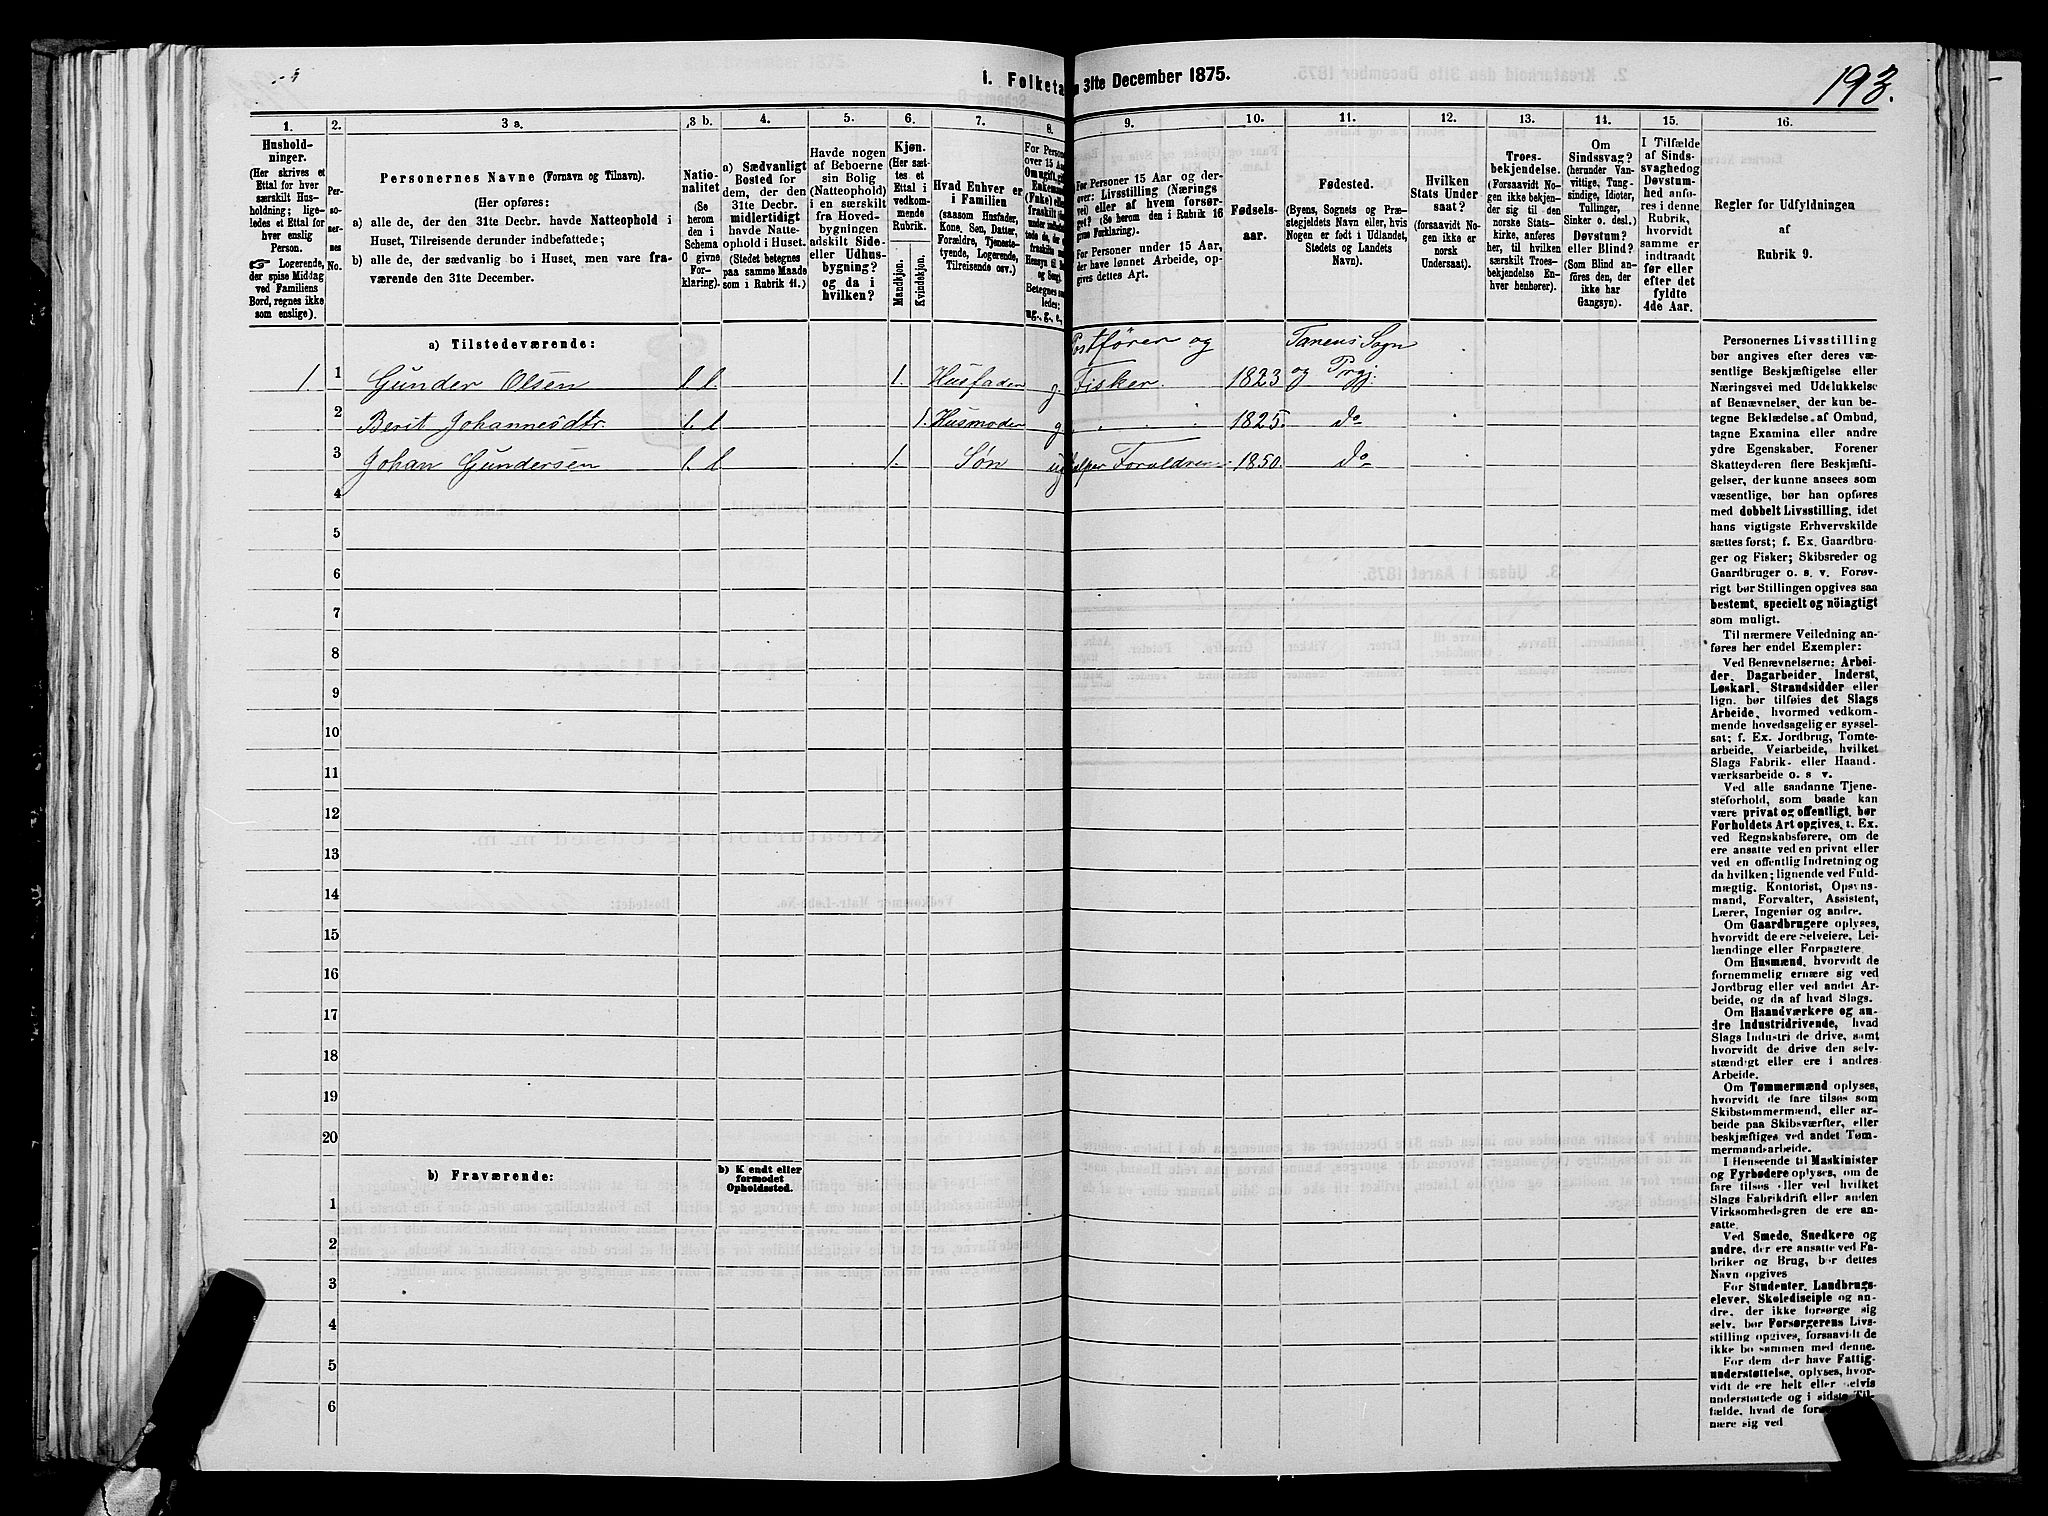 193.
1. Folketa
n 31te December 1875.
1.
2.
3 a.
3 b.
4.
5.
6.
7.
8.
9.
10.
11.
12.
13.
14.
15.
16.
Husholdninger.
(Her skrives et
Ettal for hver
særskilt Husholdning;
ligeledes et Ettal for
hver enslig
Person.
☞ Logerende,
der spise Middag
ved Familiens
Bord, regnes ikke
som enslige).
Personernes
No.
Personernes Navne (Fornavn og Tilnavn).
(Her opføres:
a) alle de, der den 31te Decbr. havde Natteophold i
Huset, Tilreisende derunder indbefattede;
b) alle de, der sædvanlig bo i Huset, men vare fraværende
den 31te December.
Nationalitet
(Se
herom
den i
Schema
C givne
Forklaring).
a) Sædvanligt
Bosted for
dem, der den
31te Decbr.
midlertidigt
havde Natteophold
i Huset.
(Stedet betegnes
paa samme Maade
som i Rubrik 11.)
Havde nogen
af Beboerne
sin Bolig
(Natteophold)
i en særskilt
fra Hovedbygningen
adskilt Side-
eller Udhusbygning?
og da i
hvilken?
Kjøn.
(Her sættes
et
Ettal i
vedkommende
Rubrik.
Mandkjøn.
Kvindekjøn.
Hvad Enhver er
i Familien
(saasom Husfader,
Kone, Søn, Datter,
Forældre, Tjenestetyende,
Logerende,
Tilreisende osv.)
For Personer 15 Aar og derover:
Livsstilling (Næringsvei)
eller af hvem forsørget?
(Se herom den i Rubrik 16
givne Forklaring).
For Personer under 15 Aar,
der have lønnet Arbeide, opgives
dettes Art.
Fødselsaar.
Fødested.
(Byens, Sognets og Præstegjeldets
Navn eller, hvis
Nogen er født i Udlandet,
Stedets og Landets
Navn).
Hvilken
Stats Undersaat?
(forsaavidt Nogen
ikke er
norsk
Undersaat).
Troesbekjendelse.
(Forsaavidt Nogen
ikke bekjender
sig til den
norske Statskirke,
anføres
her, til hvilken
særskilt Troesbekjendelse
Enhver
henhører).
Om
Sindssvag?
(herunder Vanvittige,
Tungsindige,
Idioter,
Tullinger,
Sinker o. desl.)
Døvstum?
eller Blind?
(Som Blind anføres
den, der
ikke har
Gangsyn).
I Tilfælde
af Sindssvaghed
og
Døvstumhed
anføres
i denne
Rubrik,
hvorvidt
samme er
indtraadt
før eller
efter det
fyldte
4de Aar.
Regler for Udfyldningen
af
Rubrik 9.
a) Tilstedeværende:
Postfører og
Tanens Sogn
1. 1 Gunder Olsen 1. Husfader g Fisker. 1823 og Prgj.
2 Berit Johannesdtr. 1. Husmoder g 1825. do
3 Johan Gundersen 1. Søn ug hjelper Forældrene 1850. do
4
5
6
7
8
9
10
11
12
13
14
15
16
17
18
19
20
b) Fraværende:
b) Kjendt eller
formodet
Opholdssted.
1
2
3
4
5
6
Personernes Livsstilling
bør angives efter deres væsentlige
Beskjæftigelse eller
Næringsvei med Udelukkelse
af Benævnelser, der kun betegne
Beklædelse af Ombud,
tagne Examina eller andre
ydre Egenskaber. Forener
Skatteyderen flere Beskjæftigelser,
der kunne ansees som
væsentlige, bør han opføres
med dobbelt Livsstilling, idet
hans vigtigste Erhvervskilde
sættes først; f. Ex. Gaardbruger
og Fisker; Skibsreder og
Gaardbruger o. s. v. Forøvrigt
bør Stillingen opgives saa
bestemt, specielt og nöiagtigt
som muligt.
Til nærmere Veiledning anføres
her endel Exempler:
Ved Benævnelserne: Arbeider,
Dagarbeider, Inderst,
Løskarl, Strandsidder eller
lign. bør tilføies det Slags
Arbeide, hvormed vedkommende
hovedsagelig er sysselsat;
f. Ex. Jordbrug, Tomtearbeide,
Veiarbeide, hvilket
Slags Fabrik- eller Haandværksarbeide
o. s. v.
Ved alle saadanne Tjenesteforhold,
som baade kan
være privat og offentligt, bør
Forholdets Art opgives, t. Ex.
ved Regnskabsførere, om de
ere ansatte ved en privat eller
ved en offentlig Indretning og
da hvilken; lignende ved Fuldmægtig,
Kontorist, Opsynsmand,
Forvalter, Assistent,
Lærer, Ingeniør og andre.
Om Gaardbrugere oplyses,
hvorvidt de ere Selveiere, Leilændinge
eller Forpagtere.
Om Husmænd, hvorvidt de
fornemmelig ernære sig ved
Jordbrug eller ved andet Arbeide,
og da af hvad Slags.
Om Haandværkere og andre
Industridrivende, hvad
Slags Industri de drive, samt
hvorvidt de drive den selvstændigt
eller ere i andres
Arbeide.
Om Tømmermænd oplyses,
hvorvidt de fare tilsøs som
Skibstømmermænd, eller arbeide
paa Skibsværfter, eller
beskjæftiges ved andet Tømmermandsarbeide.
I Henseende til Maskinister
og Fyrbødere oplyses, om de
fare tilsøs eller ved hvilket
Slags Fabrikdrift eller anden
Virksomhedsgren de ere ansatte.
Ved Smede, Snedkere og
andre, der ere ansatte ved Fabriker
og Brug, bør dettes
Navn opgives
For Studenter, Landbrugselever,
Skoledisciple og andre,
der ikke forsørge sig
selv, bør Forsørgerens Livsstilling
opgives, forsaavidt de
ikke bo sammen med denne.
For dem, der have Fattigunderstøttelse,
oplyses, hvorvidt
de ere helt eller delvis
understøttede og i sidste Tilfælde,
hvad de
nære sig ved